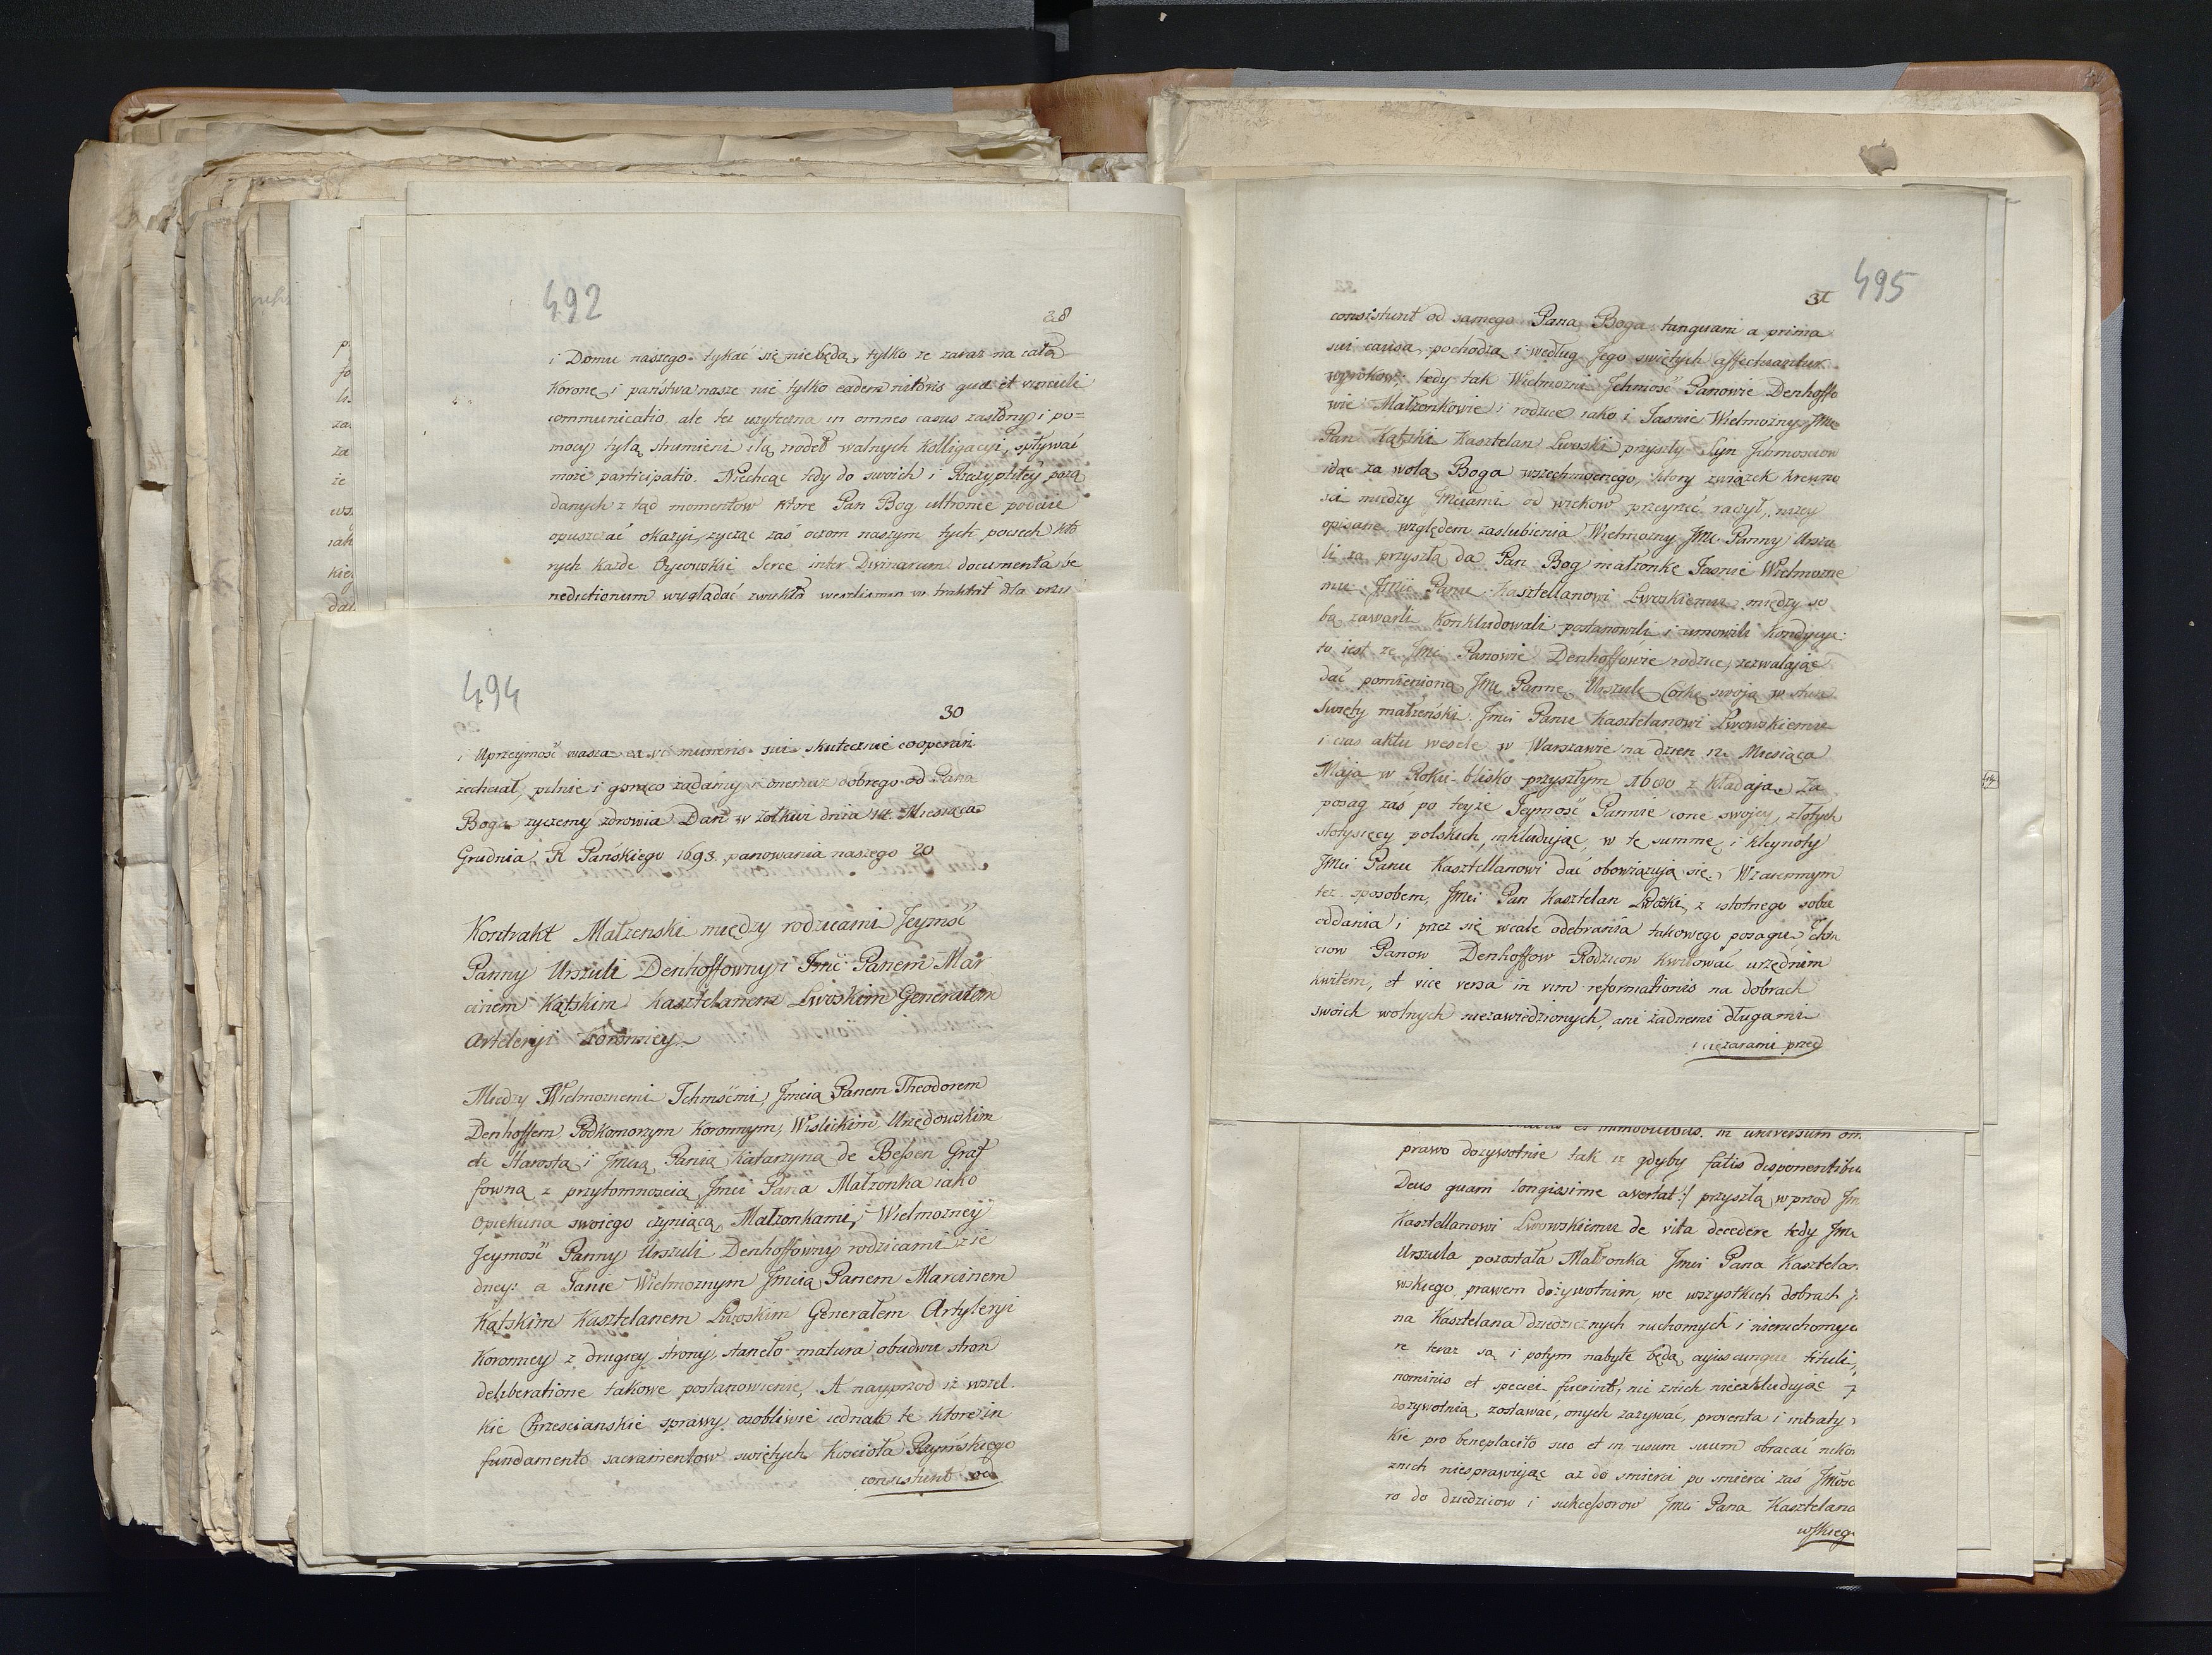 492
28
i Domu naszego tykać się niebędą, tylko ze zaraz na całą
Koronę i państwa nasze nie tylko eadem nitoris quae et vinculi
communicatio, ale tez uzyteczna in omnes casus zasłony i po=
mocy tylą strumieni ilą zrodeł walnych Kolligacyi, spływać
może participatio. Niechcąc tedy do swoich i Rzczyptltey pożą
danych z tąd momentow które Pan Bog ultronee podaie
opuszczać okazyi, zycząc zaś oczom naszym tych pociech któ
rych każde Oycowskie Serce inter Divinarum documenta be
nedictionum wyglądać zwykło
494
30
i Uprzeymość wasza ex vi muneris sui skutecznie cooperari
zechciał, pilnie i gorąco ządamy i onemuz dobrego od Pana
Boga zyczemy zdrowia Dan w Zołkwi dnia Miesiąca
Grudnia R Pańskiego 1693. panowania naszego 20
Kontrakt Małzenski między rodzicami Jeymść
Panny Urszuli Denhoffowny i Jmć Panem Mar
cinem Kątskim Kasztelanem Lwoskim Generałem
Artyleryi Koronney
Między Wielmoznemi Ichmśćmi, Jmcią Panem Theodorem
Denhoffem Podkomorzym Koronnym, Wislickim, Urzędowskim
etc Starostą i Jmcią Panią Katarzyną de Bessen Graf
fowną z przytomnoscią Jmci Pana Małzonka iako
Opiekuna swoiego czyniącą, Małzonkami, i Wielmozney
Jeymość Panny Urszuli Denhoffowny rodzicami z ie
dney: a Janie Wielmoznym Jmcią Panem Marcinem
Kątskim Kasztelanem Lwoskim Generałem Artyleryi
Koronney z drugiey strony, staneło matura obudwu stron
deliberatione takowe postanowienie, A nayprzod iz wszel
kie Chrzescianskie sprawy osobliwie iednak te ktore in
fundamento sacramentow swiętych Koscioła Rzymskiego
consistunt od
31
495
consistunt od samego Pana Boga tanquam a prima
sui causa, pochodzą i według Jego swiętych affectuantur
wyrokow; tedy tak Wielmozni Ichmość Panowie Denhoffo
wie Małzonkowie i rodzice iako i Jasnie Wielmozny Jmc
Pan Kątski Kasztelan Lwoski przyszły Syn Jchmosciow
idąc za wolą Boga wszechmocnego, ktory związek krewno
sci między Jmciami od wiekow przeyrzeć raczył, nizey
opisane względem zaslubienia Wielmozny Jmc Panny Urszu
li za przyszłą da Pan Bog małzonkę Jasnie Wielmozne
mu Jmci Panu Kasztellanowi Lwoskiemu między so
bą zawarli Konkludowali postanowili i umowili Kondycye:
to iest ze Jmci Panowie Denhoffowie rodzice, zezwalając
dać pomienioną Jmc Pannę Urszulę Corkę swoią w stan
Swięty małzeński Jmci Panu Kasztelanowi Lwowskiemu
i czas aktu wesele w Warszawie na dzien 12 Miesiąca
Maja w Roku blisko przyszłym 1680 z kładaja. Za
posag zas po teyze Jeymość Pannie corce swojey, złotych
stotysięcy polskich, inkludując w tę summę i kleynoty
Jmci Panu Kasztellanowi dać obowiązują się. Wzaiemnym
tez sposobem, Jmci Pan Kasztelan Lwoski, z istotnego sobie
oddania i przez się wcale odebrania takowego posagu Ichm
ciow Panow Denhoffow Rodzicow Kwitować urzędnim
kwitem, et vice versa in vim reformationis na dobrach
swoich wolnych niezawiedzionych, ani żadnemi długami
i ciężarami przed
et immobilibus. in universum om
prawo dozywotnie tak iz gdyby fatis disponentibu
Deus quam longissime avertat:/ przyszłą w przod Jm
Kasztellanowi Lwowskiemu de vita decedere tedy Jmc
Urszula pozostała Małzonka Jmci Pana Kasztelan
wskiego prawem dożywotnim, we wszystkich dobrach J
na Kasztelana dziedzicznych ruchomych i nieruchomych
re teraz są i potym nabyte będą cujuscunque tituli,
nominis et speciei fuerint, nic z nich nieexkludując
dozywotnią zostawać, onych zazywać, proventa i intraty
kie pro beneplacito suo et in usum suum obracać niko
z nich niesprawując az do smierci po smierci zaś Jmośc
ro do dziedzicow i sukcessorow Jmci Pana Kasztelana
wskieg